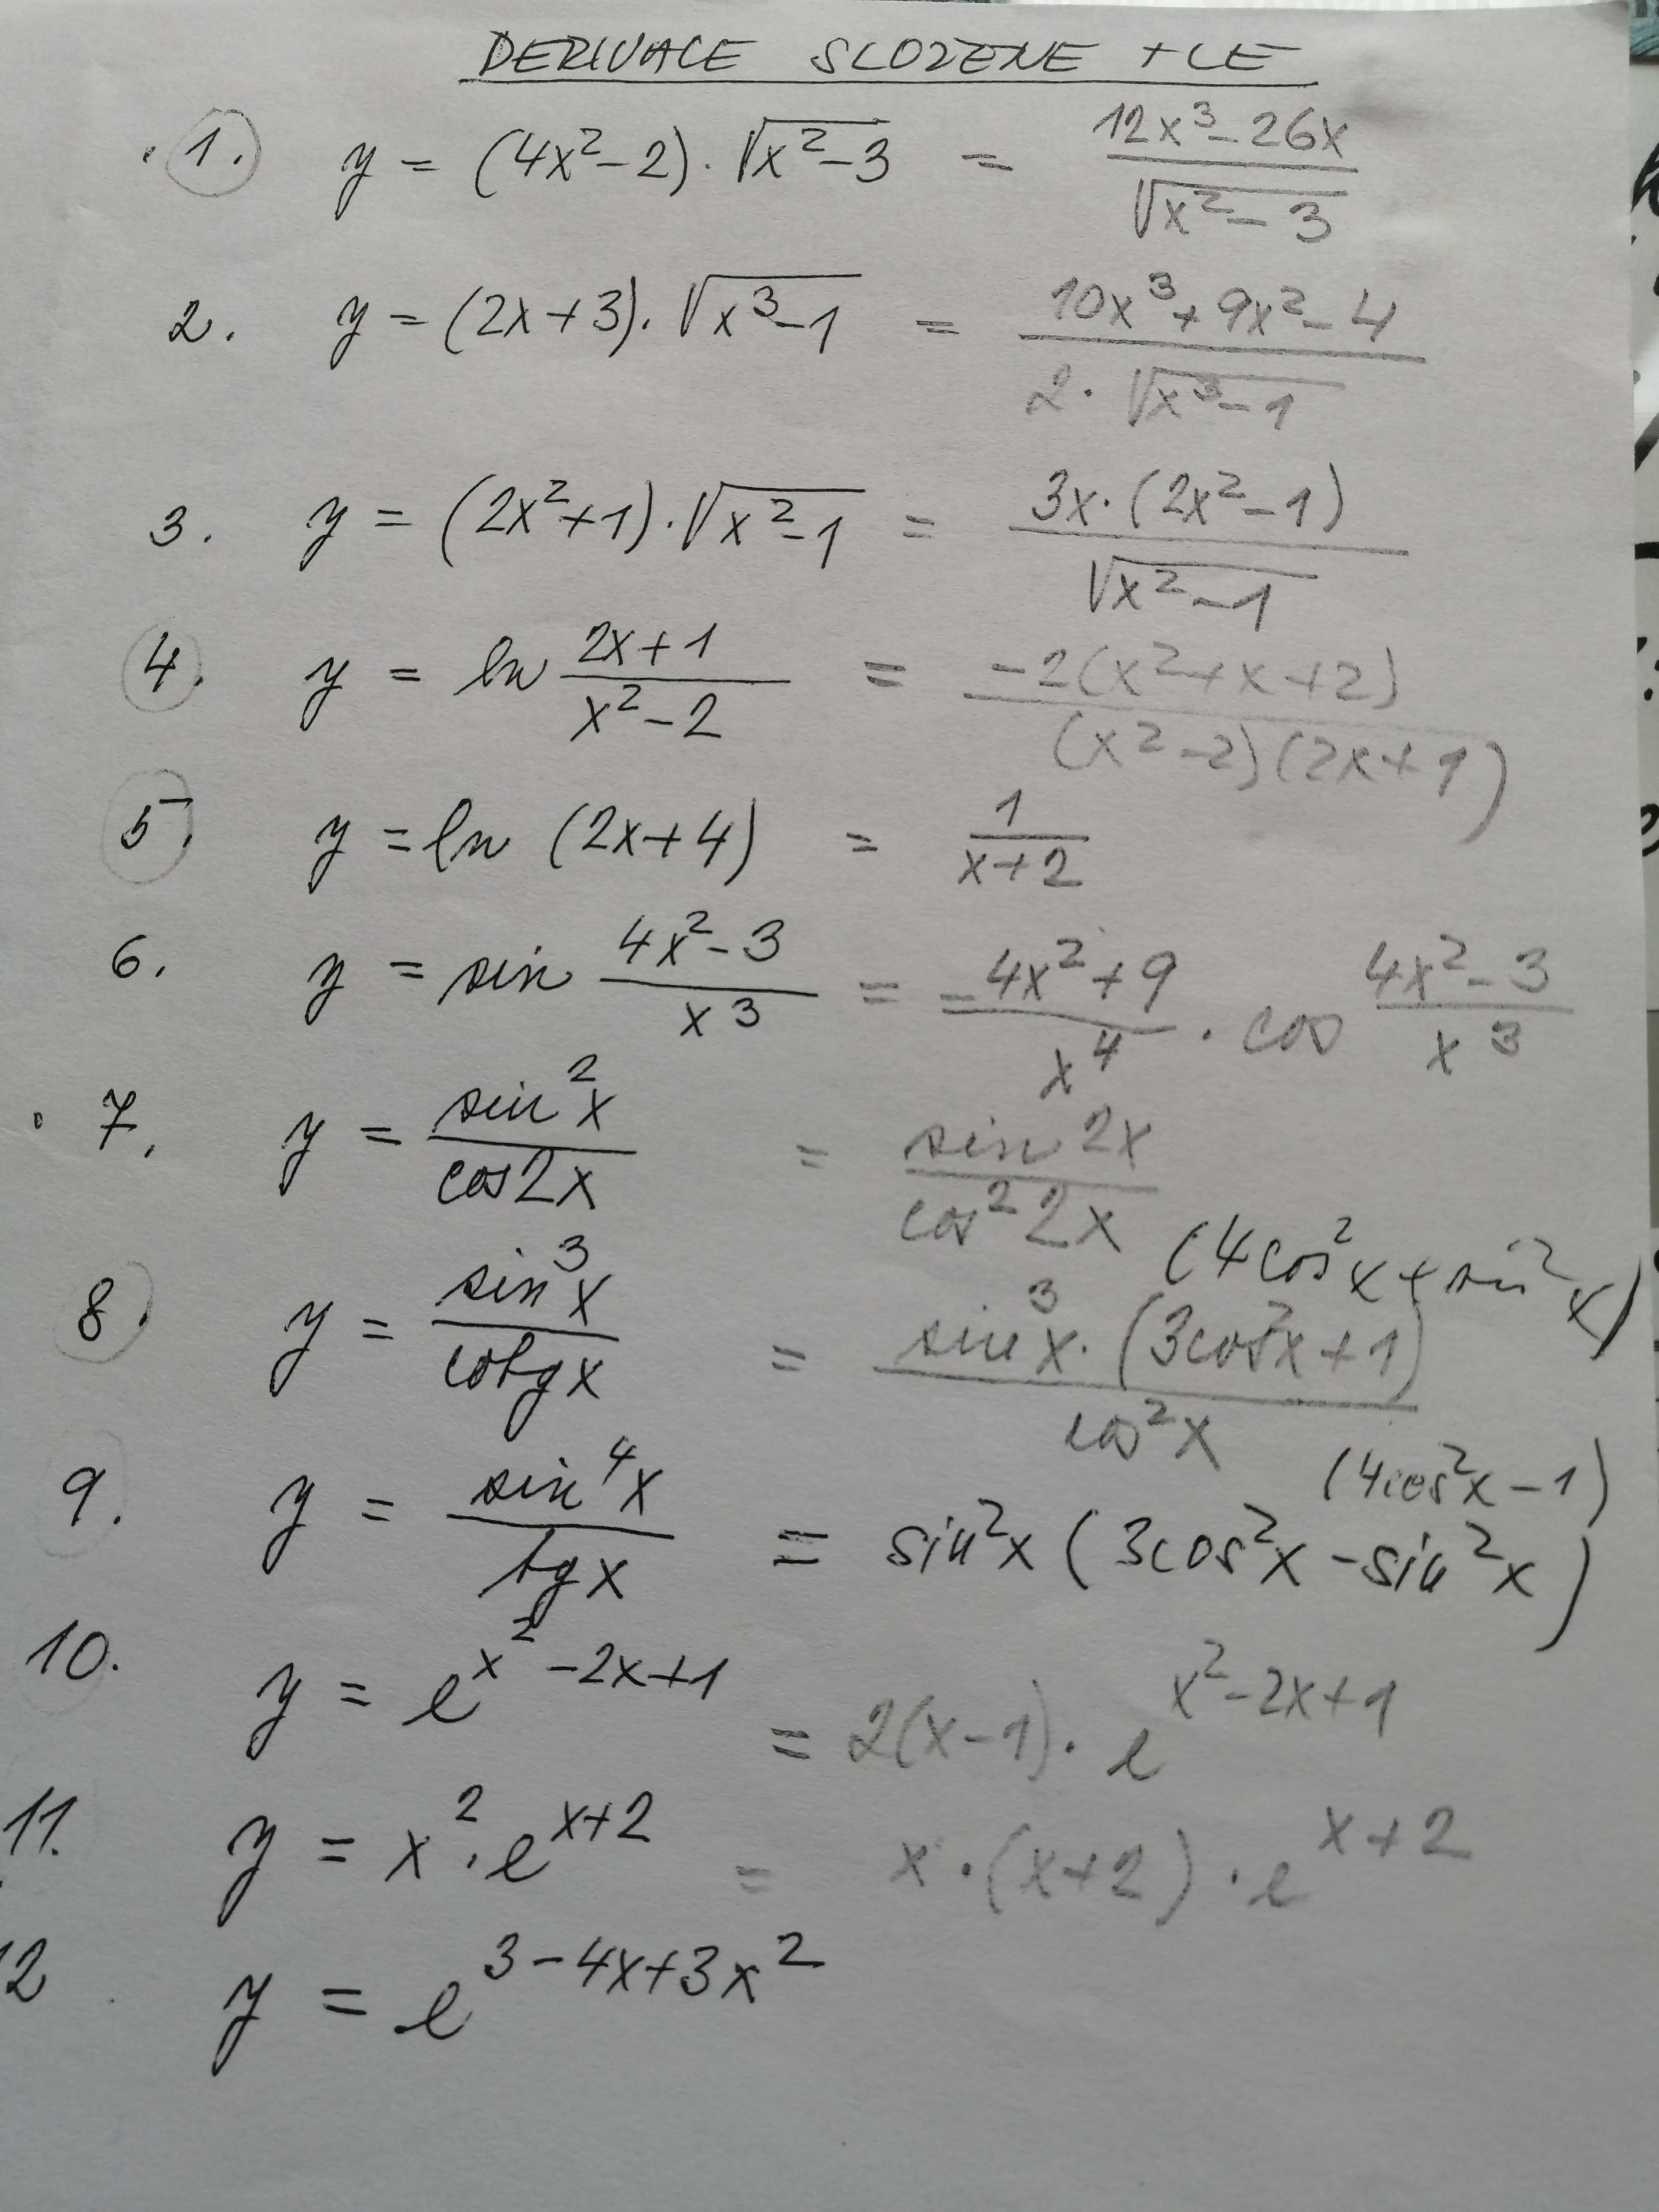 DERIVACE SLOZENE FCE
1. y = (4x²-2)·√(x²-3) = (12x³-26x)/√(x²-3)
2. y = (2x+3)·√(x³-1) = (10x³+9x²-4)/(2·√(x³-1))
3. y = (2x²+1)·√(x²-1) = 3x·(2x²-1)/√(x²-1)
4. y = ln (2x+1)/(x²-2) = -2(x²+x+2)/((x²-2)(2x+1))
5. y = ln (2x+4) = 1/(x+2)
6. y = sin (4x²-3)/x³ = (-4x²+9)/x⁴ · cos (4x²-3)/x³
7. y = sin²x/cos2x = sin2x/cos²2x
(4cos²x+sin²x)
8. y = sin³x/cotgx = sin³x·(3cos²x+1)/cos²x
(4cos²x-1)
9. y = sin⁴x/tgx = sin²x(3cos²x-sin²x)
10. y = e^(x²-2x+1) = 2(x-1)·e^(x²-2x+1)
11. y = x²·e^(x+2) = x·(x+2)·e^(x+2)
12 y = e^(3-4x+3x²)